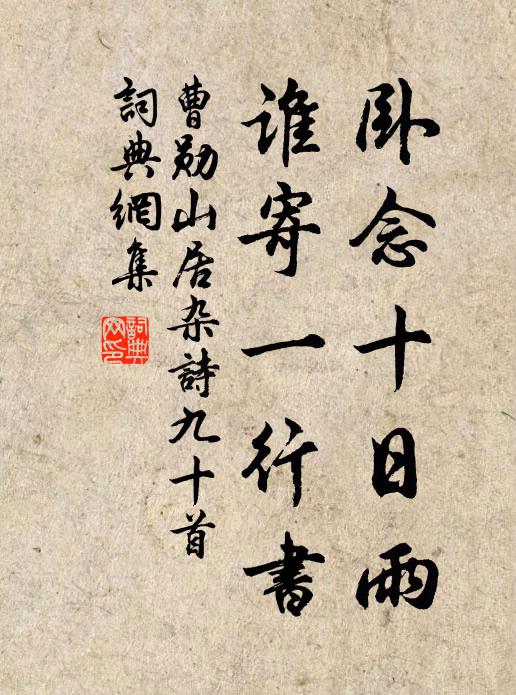 卧念十日雨
誰寄一行書
曹勛山居杂詩九十首
詞典網集
詞典
网印